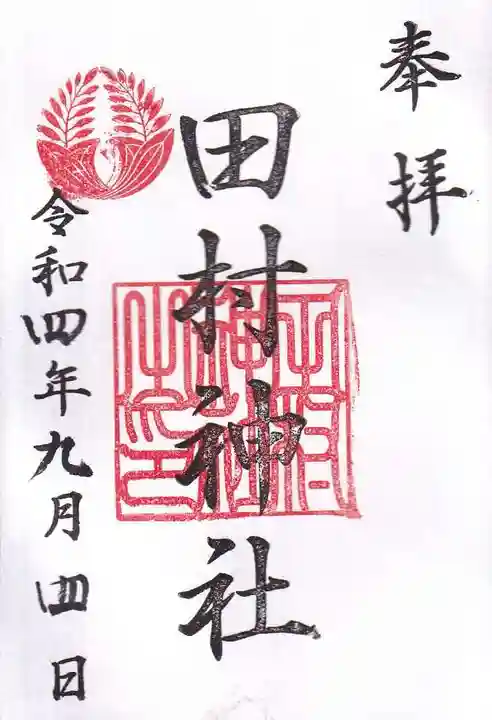 奉拝
田村神社
令和四年九月四日